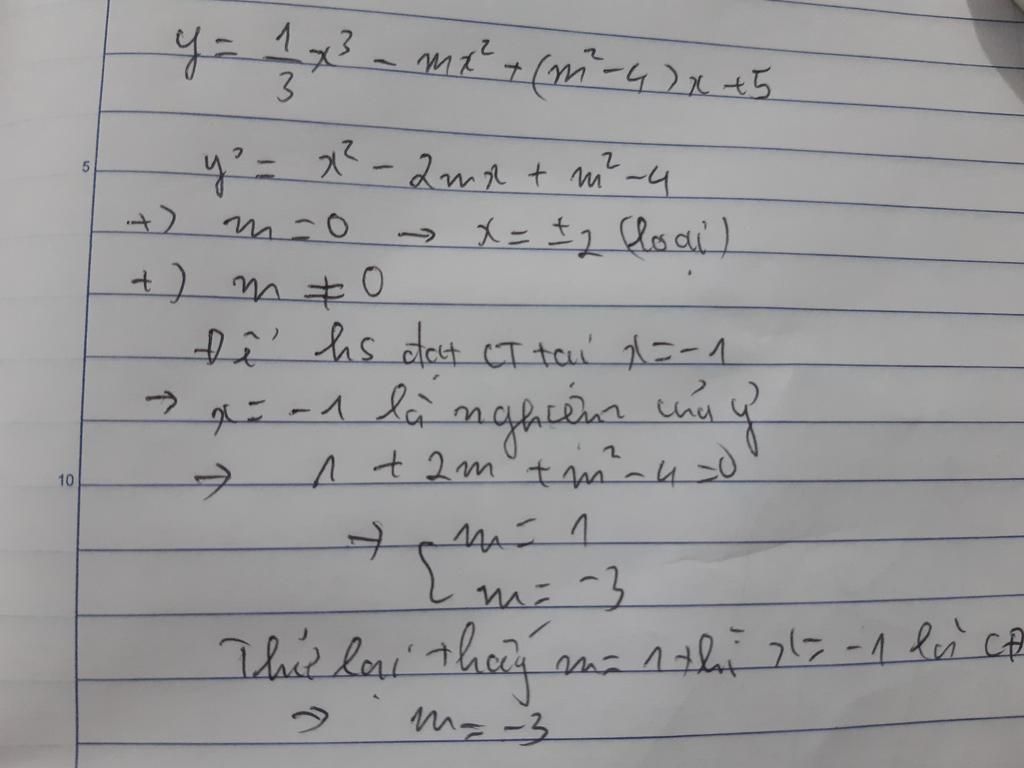 y = 1/3 x³ - mx² + (m²-4)x +5
5
y' = x² - 2mx + m² -4
+) m = 0 → x = ±2 (loại)
+) m ≠ 0
Để hs đạt CT tại x = -1
→ x = -1 là nghiệm của y'
10
→ 1 + 2m + m² - 4 = 0
→ { m = 1
m = -3
Thử lại thấy m = 1 thì x = -1 là CĐ
→ m = -3